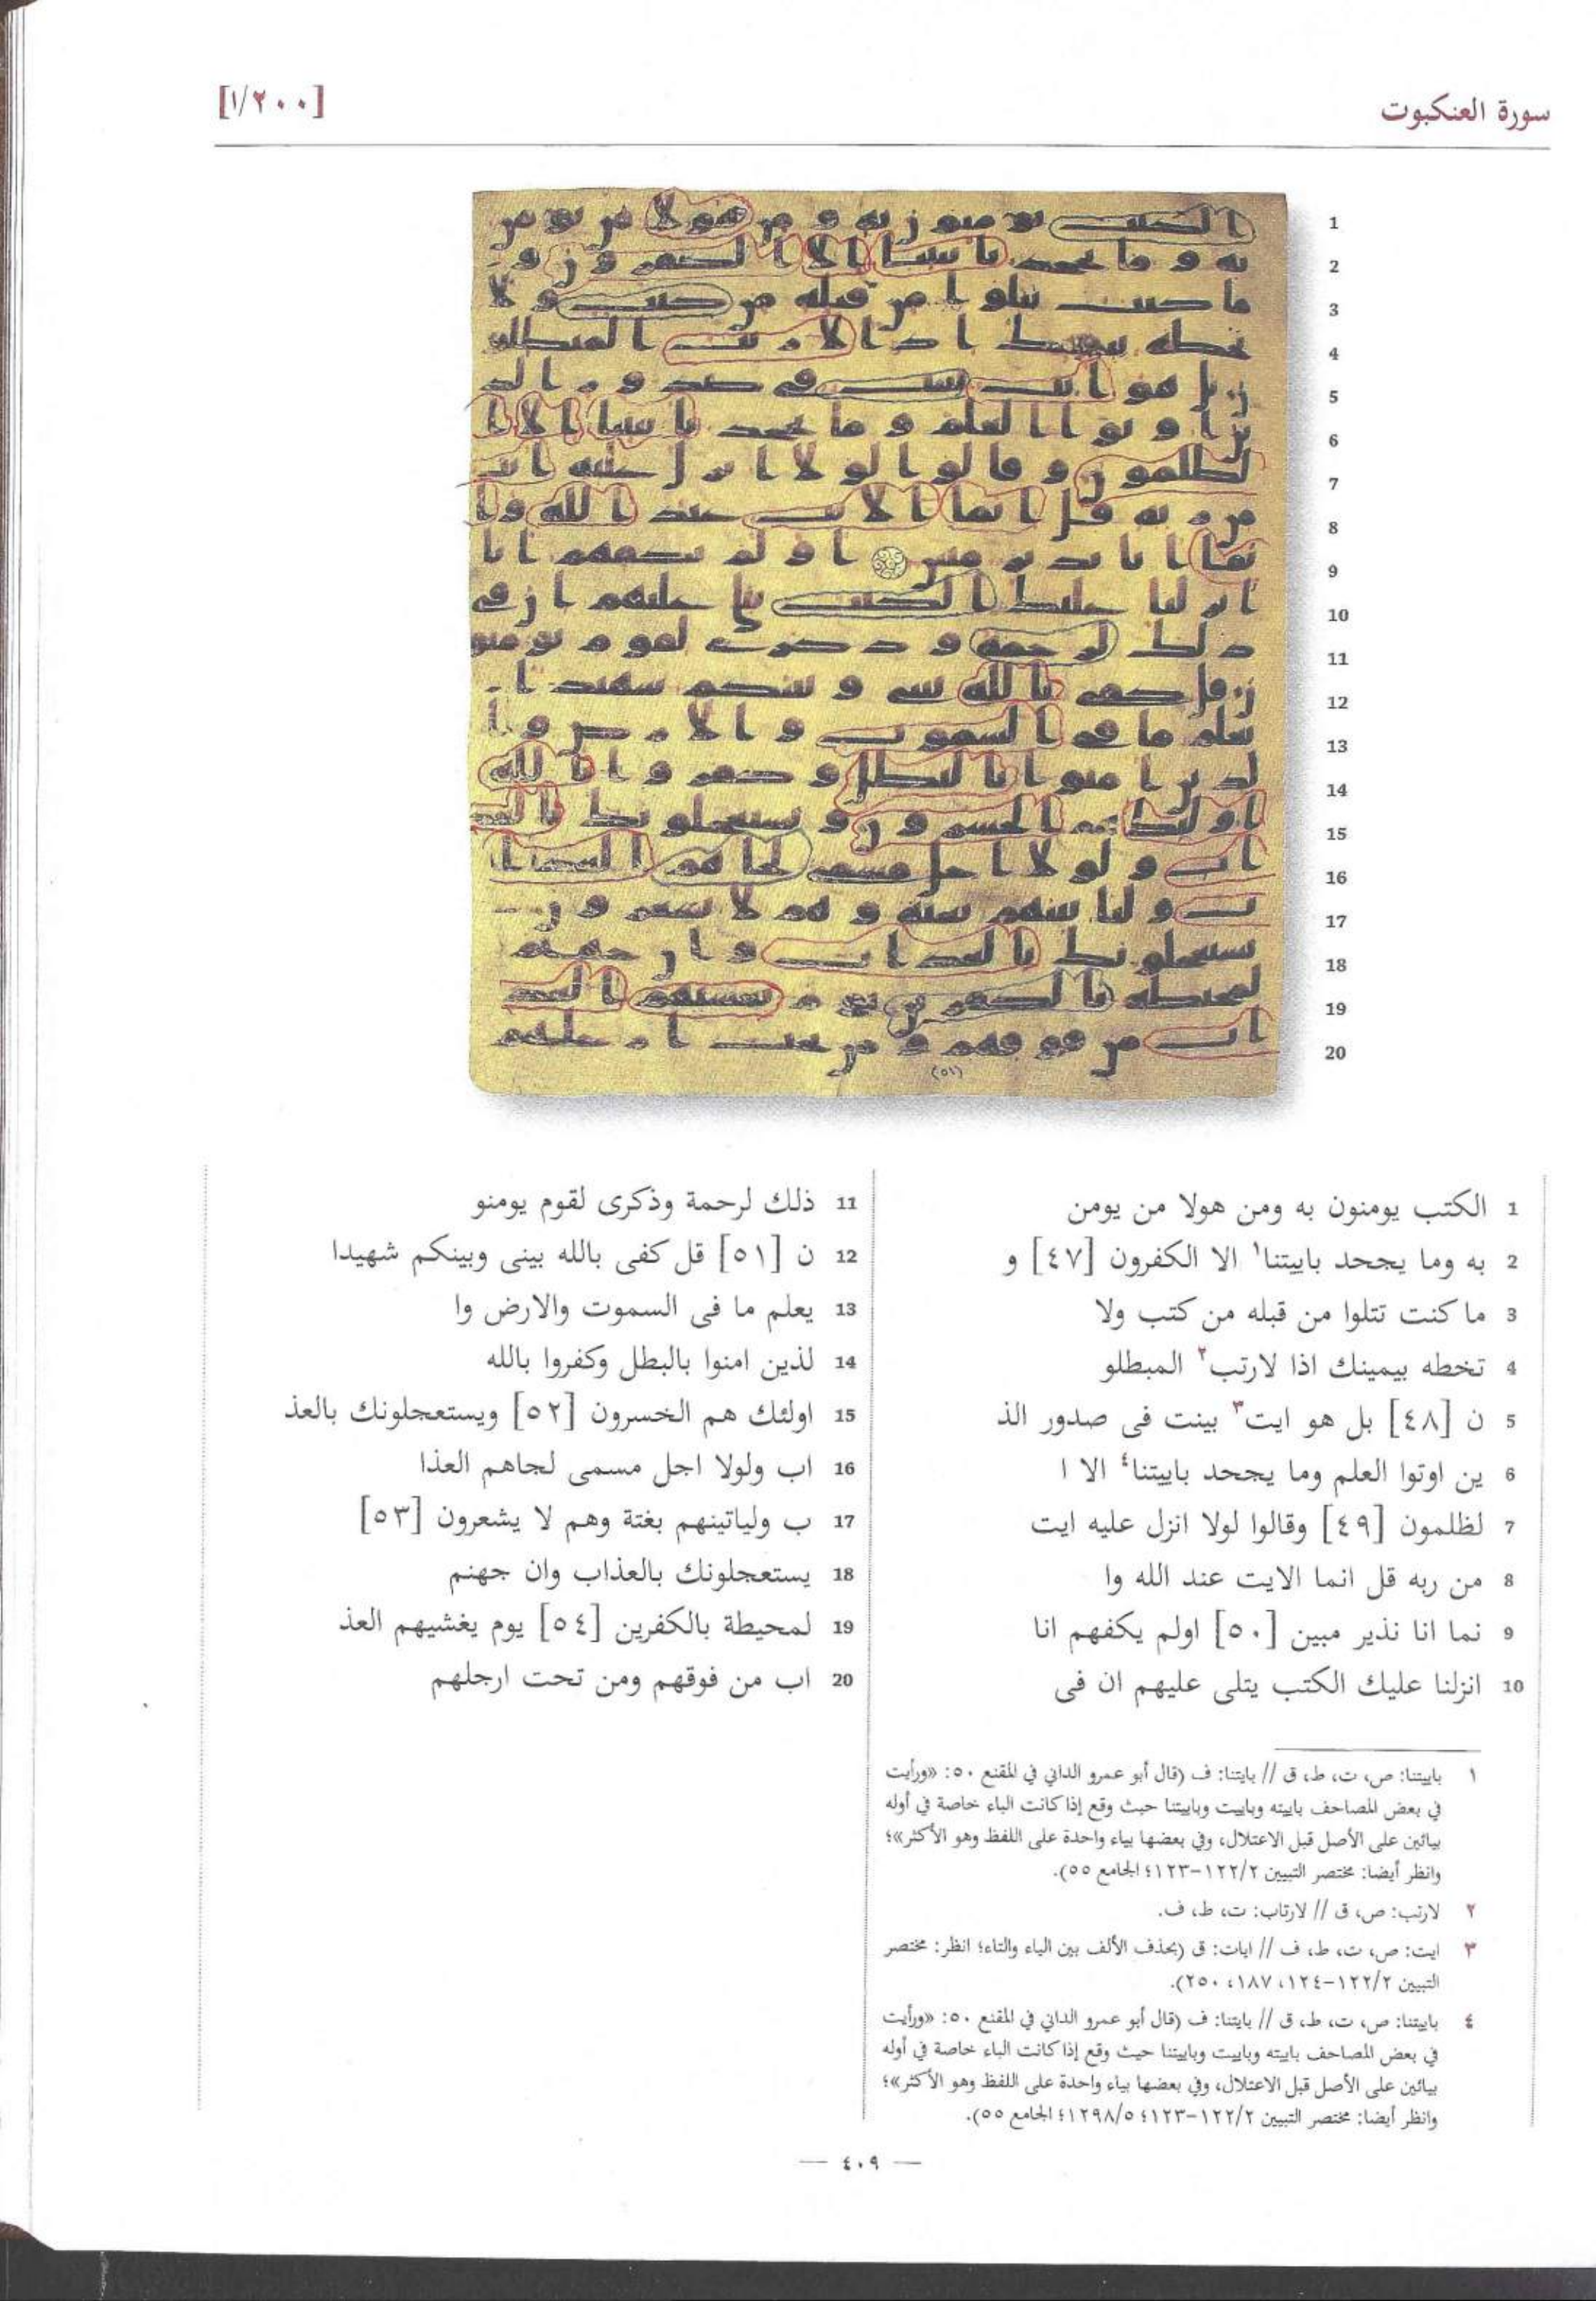 سورة العنكبوت
[٢٠٠/١]
1
2
3
4
5
6
7
8
9
10
11
12
13
14
15
16
17
18
19
20
(٥١)
1 الكتب يومنون به ومن هولا من يومن
2 به وما يجحد باييتنا١ الا الكفرون [٤٧] و
3 ما كنت تتلوا من قبله من كتب ولا
4 تخطه بيمينك اذا لارتب٢ المبطلو
5 ن [٤٨] بل هو ايت٣ بينت فى صدور الذ
6 ين اوتوا العلم وما يجحد باييتنا٤ الا ا
7 لظلمون [٤٩] وقالوا لولا انزل عليه ايت
8 من ربه قل انما الايت عند الله وا
9 نما انا نذير مبين [٥٠] اولم يكفهم انا
10 انزلنا عليك الكتب يتلى عليهم ان فى
11 ذلك لرحمة وذكرى لقوم يومنو
12 ن [٥١] قل كفى بالله بينى وبينكم شهيدا
13 يعلم ما فى السموت والارض وا
14 لذين امنوا بالبطل وكفروا بالله
15 اولئك هم الخسرون [٥٢] ويستعجلونك بالعذ
16 اب ولولا اجل مسمى لجاهم العذا
17 ب ولياتينهم بغتة وهم لا يشعرون [٥٣]
18 يستعجلونك بالعذاب وان جهنم
19 لمحيطة بالكفرين [٥٤] يوم يغشيهم العذ
20 اب من فوقهم ومن تحت ارجلهم
١ باييتنا: ص، ت، ط، ق // بايتنا: ف (قال أبو عمرو الداني في المقنع ٥٠: «ورأيت
في بعض المصاحف باييته وباييت وباييتنا حيث وقع إذا كانت الباء خاصة في أوله
بيائين على الأصل قبل الاعتلال، وفي بعضها بياء واحدة على اللفظ وهو الأكثر»؛
وانظر أيضا: مختصر التبيين ١٢٢/٢-١٢٣؛ الجامع ٥٥).
٢ لارتب: ص، ق // لارتاب: ت، ط، ف.
٣ ايت: ص، ت، ط، ف // ايات: ق (بحذف الألف بين الياء والتاء؛ انظر: مختصر
التبيين ١٢٢/٢-١٢٤، ١٨٧، ٢٥٠).
٤ باييتنا: ص، ت، ط، ق // بايتنا: ف (قال أبو عمرو الداني في المقنع ٥٠: «ورأيت
في بعض المصاحف باييته وباييت وباييتنا حيث وقع إذا كانت الباء خاصة في أوله
بيائين على الأصل قبل الاعتلال، وفي بعضها بياء واحدة على اللفظ وهو الأكثر»؛
وانظر أيضا: مختصر التبيين ١٢٢/٢-١٢٣؛ ١٢٩٨/٥؛ الجامع ٥٥).
— ٤٠٩ —